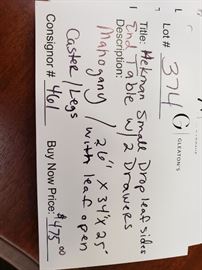 Lot # 374 G GLEATON'S
Title: Hekman Small Drop leaf sides
End Table w/2 Drawers
Description:
Mahogany / 26" x 34" x 25"
with leaf open
Caster / Legs
Consignor # 461 Buy Now Price: $475.00